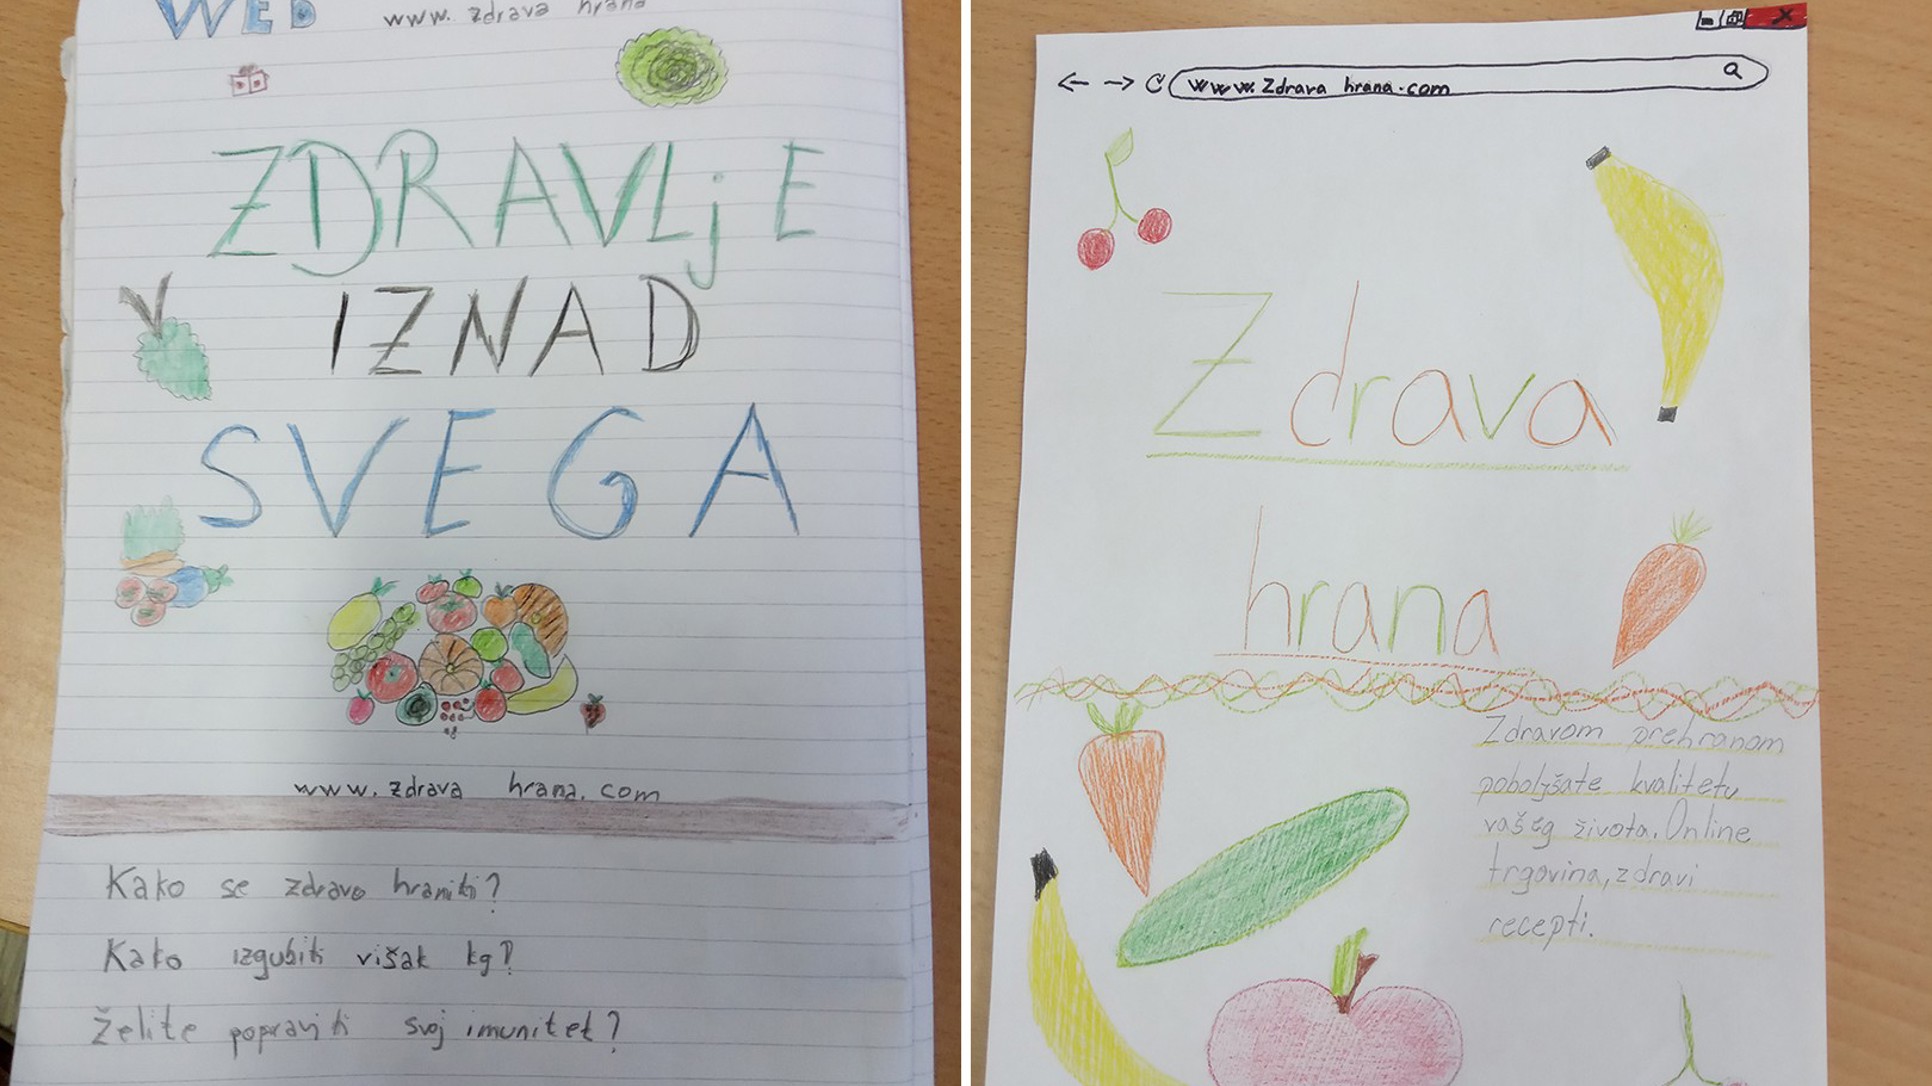 WEB www. zdrava hrana
ZDRAVLjE
IZNAD
SVEGA
www. zdrava hrana. com
Kako se zdravo hraniti?
Kako izgubiti višak kg?
Želite popraviti svoj imunitet?
www. Zdrava hrana.com
Zdrava
hrana
Zdravom prehranom
poboljšate kvalitetu
vašeg života. Online
trgovina, zdravi
recepti.